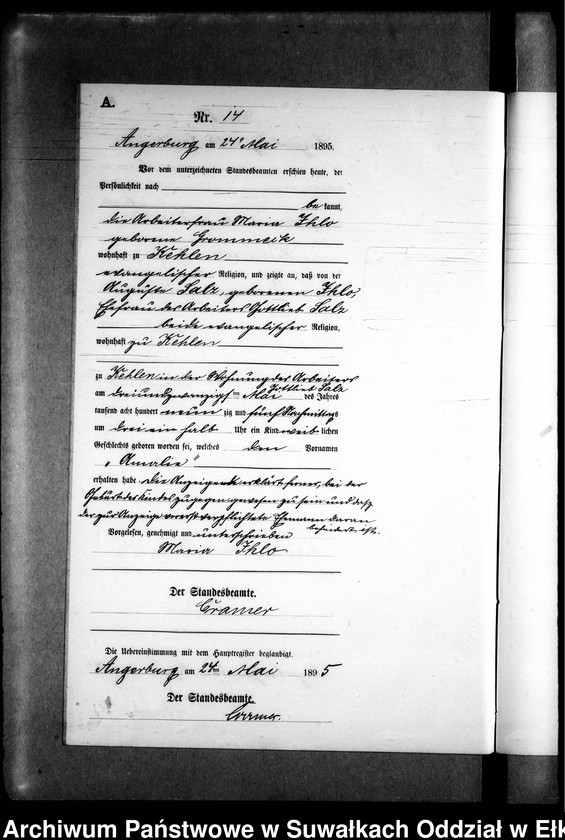 A.
Nr. 14
Angerburg am 24t Mai 1895.
Vor dem unterzeichneten Standesbeamten erschien heute, der
Persönlichkeit nach
be kannt,
die Arbeiterfrau Maria Ihlo
geborene Grommeik
wohnhaft zu Kehlen
evangelischer Religion, und zeigte an, daß von der
Auguste Salz, geborenen Ihlo,
Ehefrau des Arbeiters Gottlieb Salz
beide evangelischer Religion,
wohnhaft zu Kehlen
zu Kehlen in der Wohnung des Arbeiters
Gottlieb Salz
am dreiundzwanzigsten Mai des Jahres
tausend acht hundert neun zig und fünf Nachmittags
um drei ein halb Uhr ein Kind weib lichen
Geschlechts geboren worden sei, welches den Vornamen
„Amalie"
erhalten habe. Die Anzeigende erklärt ferner, bei der
Geburt des Kindes zugegen gewesen zu sein und daß
der zur Anzeige vorerst verpflichtete Ehemann daran
behindert ist.
Vorgelesen, genehmigt und unterschrieben
Maria Ihlo
Der Standesbeamte.
Cramer
Die Uebereinstimmung mit dem Hauptregister beglaubigt.
Angerburg am 24ten Mai 1895
Der Standesbeamte.
Cramer.
Archiwum Państwowe w Suwałkach Oddział w Ełk